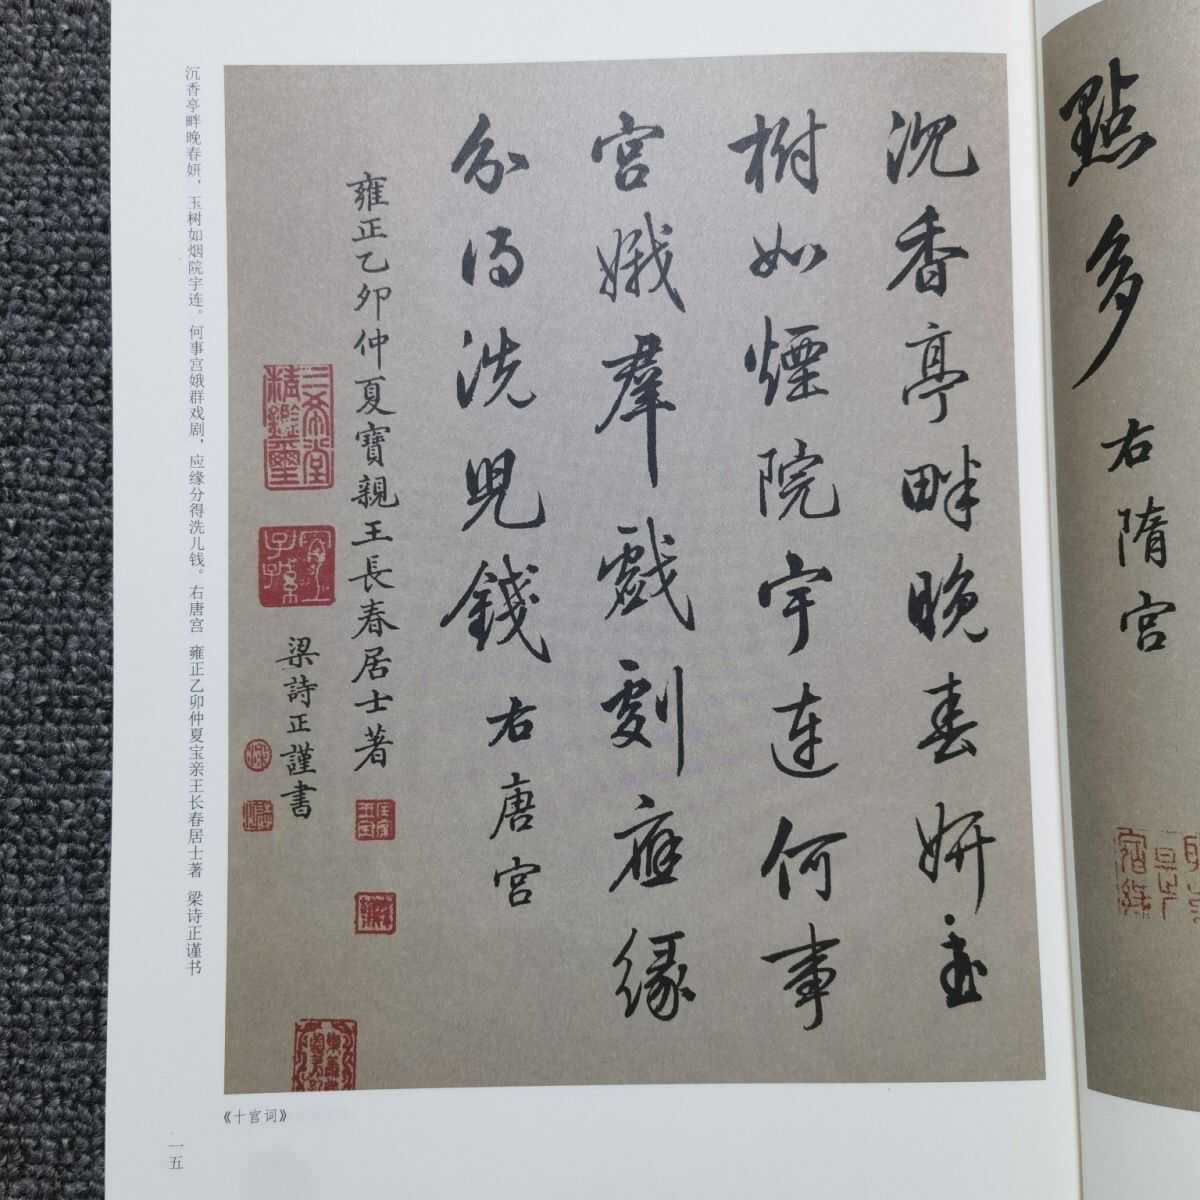 點多
右隋宮
沉香亭畔晚春妍玉
樹如煙院宇連何事
宮娥羣戲劇應緣
分得洗兒錢
右唐宮
雍正乙卯仲夏寶親王長春居士著
梁詩正謹書
三希堂精鑑璽
宜子孫
沉香亭畔晚春妍，玉树如烟院宇连。何事宫娥群戏剧，应缘分得洗儿钱。右唐宫 雍正乙卯仲夏宝亲王长春居士著 梁诗正谨书
《十宫词》
一五